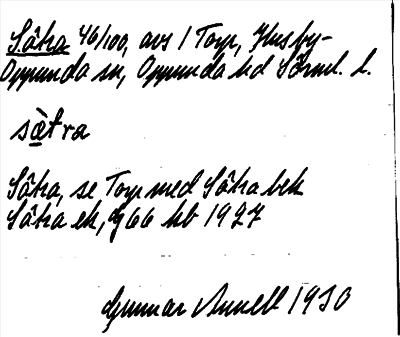 Sätra 46/100, avs 1 Torp, Husby-
Oppunda sn, Oppunda hd Sörml. l.
sǟ̀tra
Sätra, se Torp med Sätra bek
Sätra ek, g66 kb 1927
Gunnar Linnell 1930